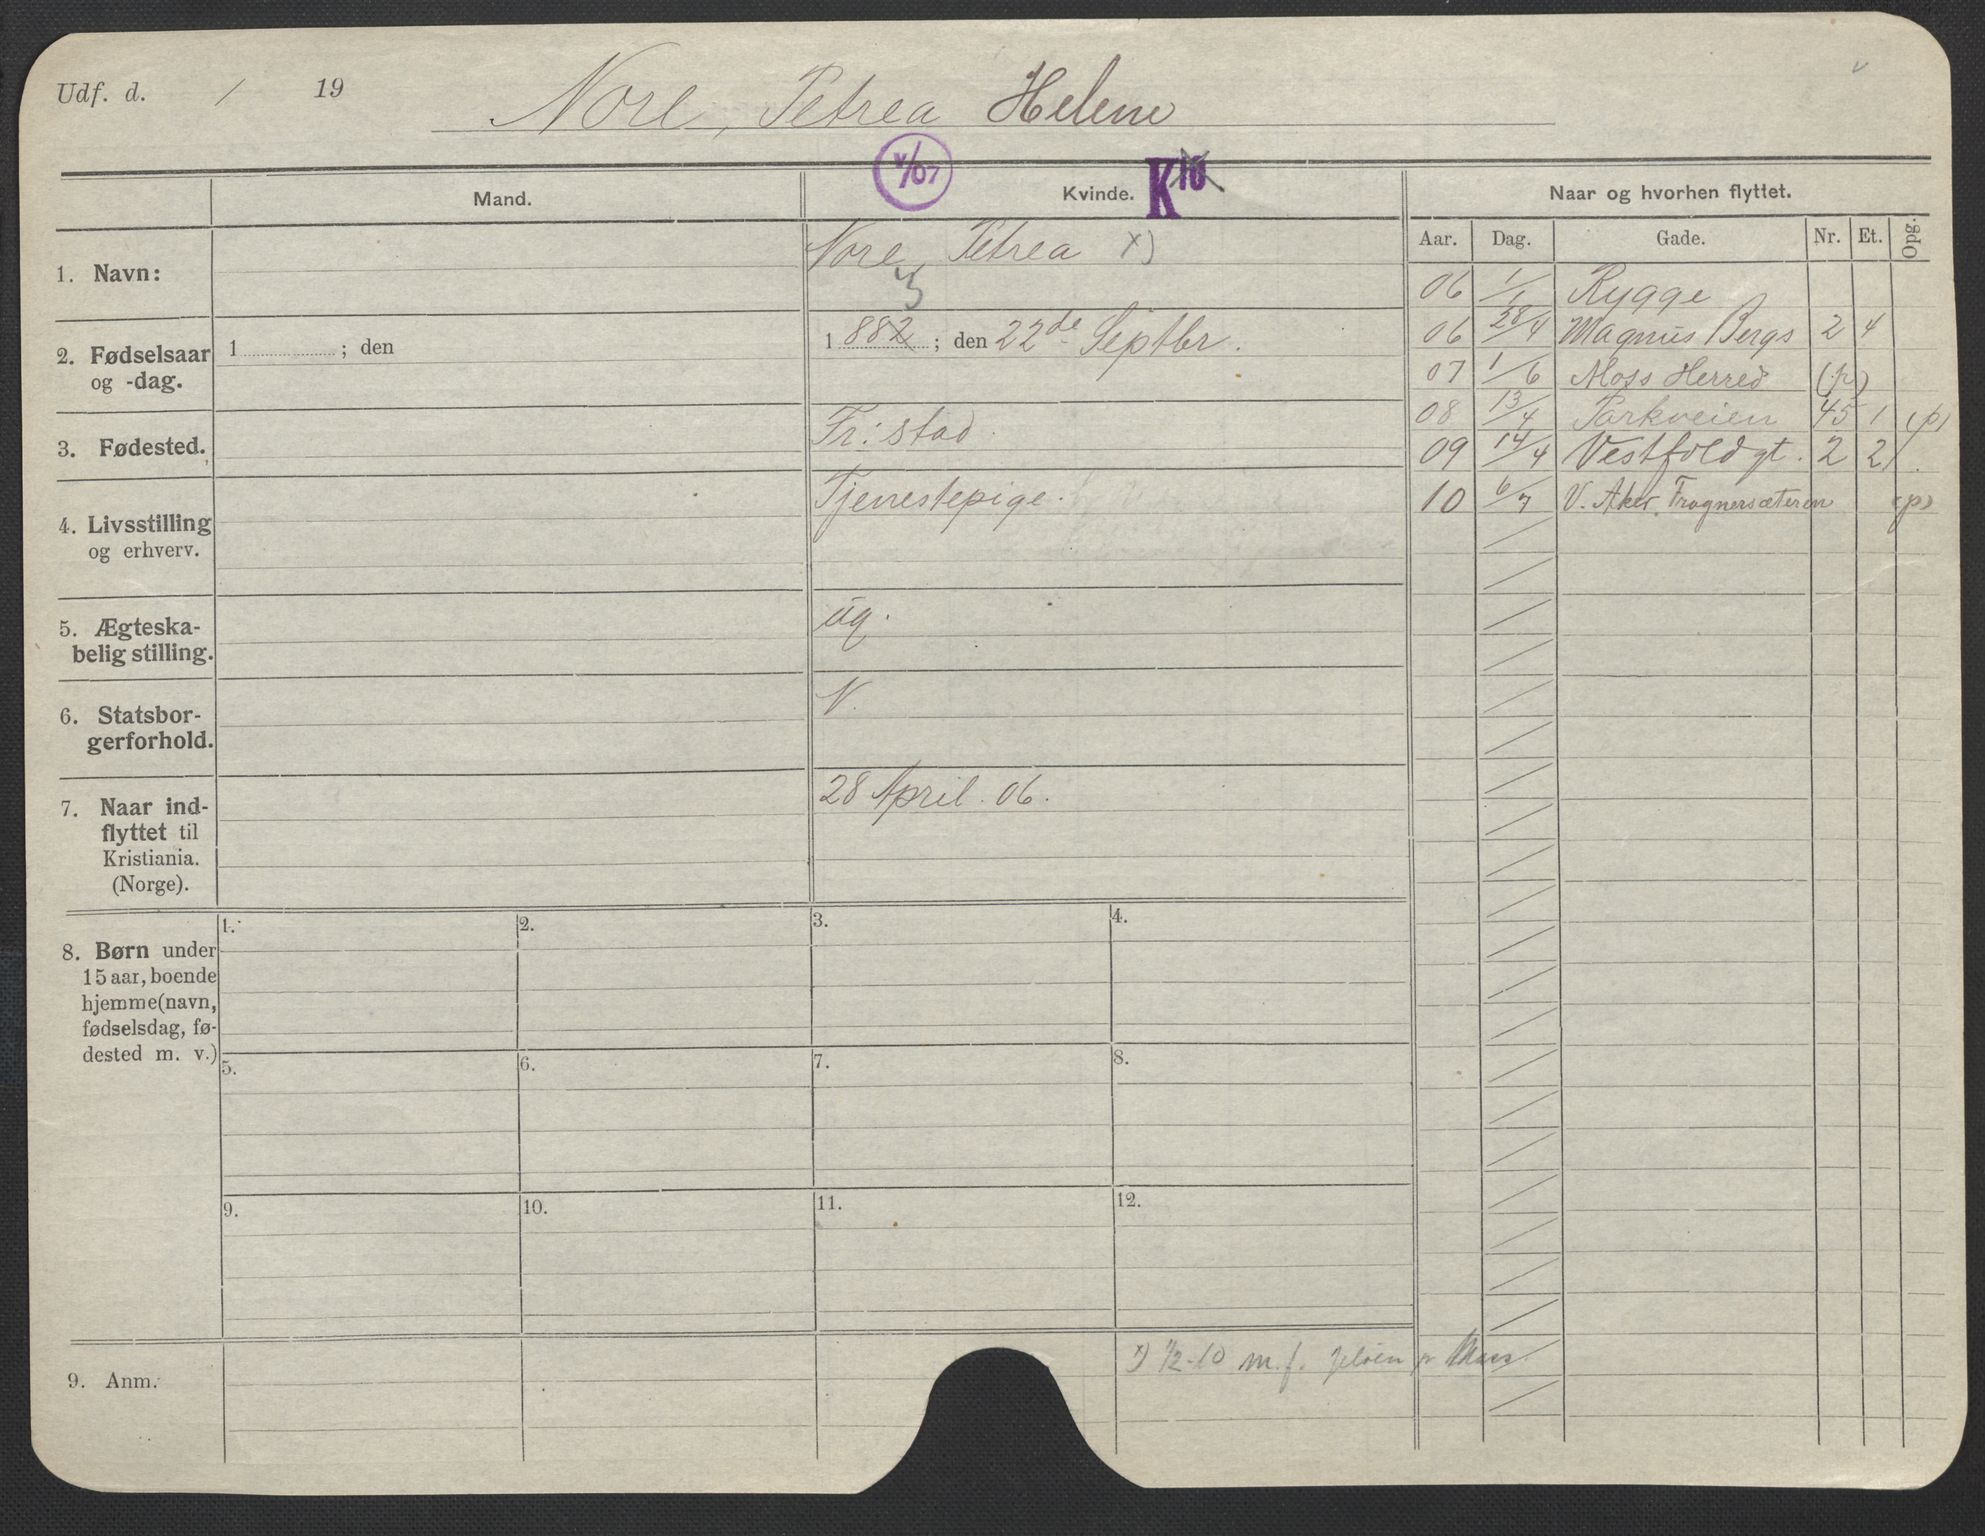 Udf. d. / 19
Nore, Petrea Helene
V/07
K 10
Mand.
Kvinde.
Naar og hvorhen flyttet.
Aar. Dag. Gade. Nr. Et. Opg.
1. Navn:
Nore, Petrea x)
3
2. Fødselsaar
og -dag.
1 ; den
1 882 ; den 22de Septbr.
3. Fødested.
Fr: stad
4. Livsstilling
og erhverv.
Tjenestepige.
5. Ægteska-
belig stilling.
ug.
6. Statsbor-
gerforhold.
N.
7. Naar ind-
flyttet til
Kristiania.
(Norge).
28 April. 06.
06 1/1 Rygge
06 28/4 Magnus Bergs 2 4
07 1/6 Moss Herred (p)
08 13/4 Parkveien 45 1 (p)
09 14/4 Vestfoldgt. 2 2/.
10 6/7 V. Aker, Frognersæteren (p)
8. Børn under
15 aar, boende
hjemme (navn,
fødselsdag, fø-
dested m. v.)
1. 2. 3. 4.
5. 6. 7. 8.
9. 10. 11. 12.
9. Anm.
x) 1/2-10 m. f. Jeløen pr Moss